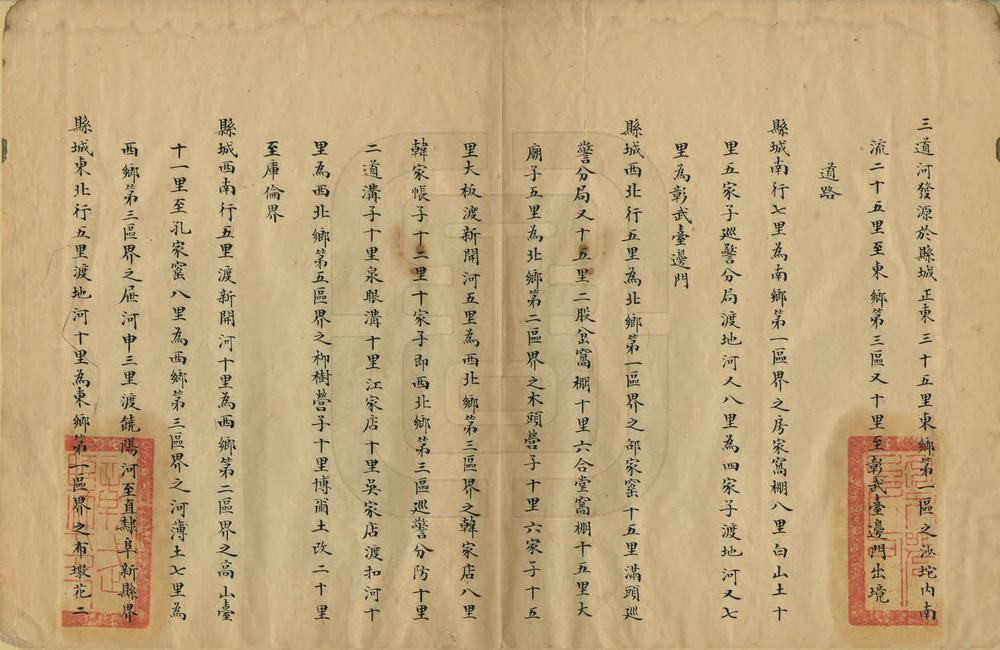 三道河發源於縣城正東三十五里東鄉第一區之沙坨內南
流二十五里至東鄉第三區又十里至彰武臺邊門出境
道路
縣城南行七里為南鄉第一區界之房家窩棚八里白山土十
里五家子巡警分局渡地河又八里為四家子渡地河又七
里為彰武臺邊門
縣城西北行五里為北鄉第一區界之邰家窰十五里滿頭巡
警分局又十五里二股岔窩棚十里六合堂窩棚十五里大
廟子五里為北鄉第二區界之木頭營子十里六家子十五
里大板渡新開河五里為西北鄉第三區界之韓家店八里
韓家帳子十二里十家子即西北鄉第三區巡警分防十里
二道溝子十里泉眼溝十里江家店十里吳家店渡扣河十
里為西北鄉第五區界之柳樹營子十里博爾土改二十里
至庫倫界
縣城西南行五里渡新開河十里為西鄉第二區界之高山臺
十一里至孔家窰八里為西鄉第三區界之河薄土七里為
西鄉第三區界之屜河申三里渡饒陽河至直隸阜新縣界
縣城東北行五里渡地河十里為東鄉第一區界之布墩花二